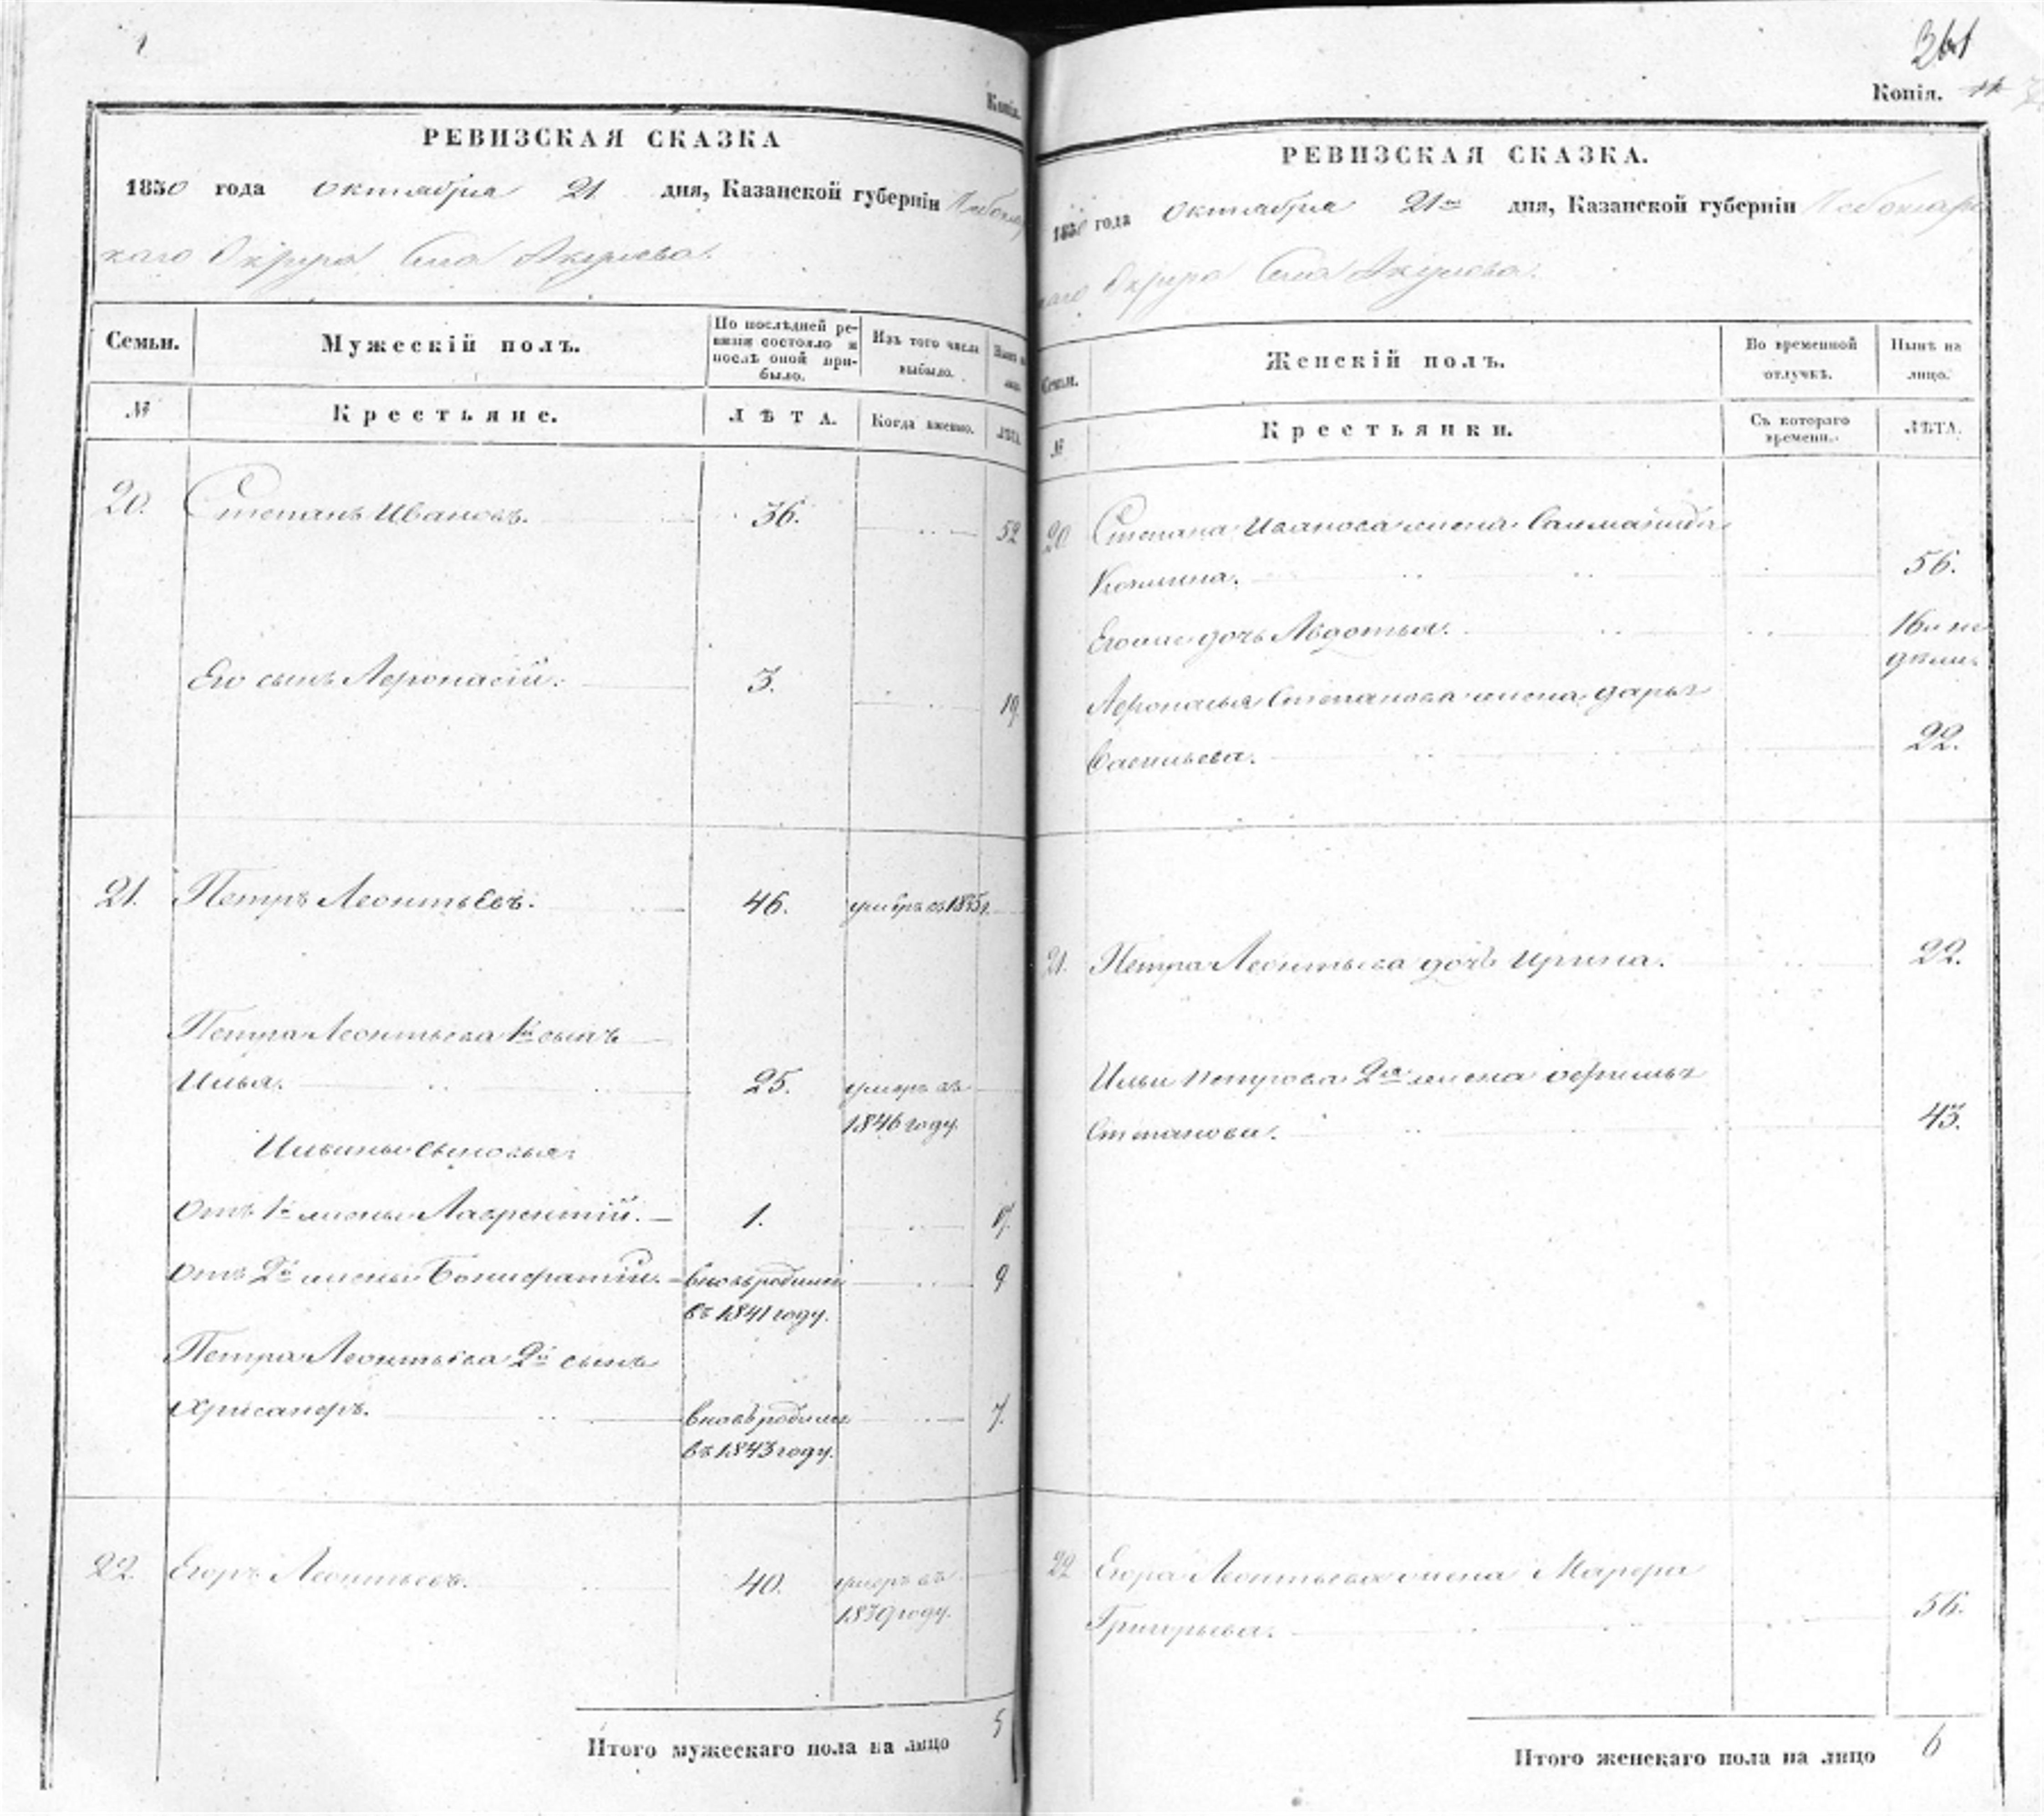 1
Копія.
РЕВИЗСКАЯ СКАЗКА
1850 года Октября 21 дня, Казанской губерніи Чебоксар
скаго Округа Села Акулева.
Семьи.
Мужескій полъ.
По послѣдней ре-
визіи состояло и
послѣ оной при-
было.
Изъ того числа
выбыло.
Нынѣ на
лицо.
№
Крестьяне.
ЛѢТА.
Когда именно.
ЛѢТА.
20. Степанъ Ивановъ. 36. 52
Его сынъ Афонасій. 3. 19
21. Петръ Леонтьевъ. 46. умеръ въ 1835 г.
Петра Леонтьева 1й сынъ
Илья. 25. умеръ въ
1846 году.
Ильины сыновья:
Отъ 1й жены Лаврентій. 1. 17.
Отъ 2й жены Бонифатій. вновь родился 9
въ 1841 году.
Петра Леонтьева 2й сынъ
Хрисанфъ. вновь родился 7.
въ 1843 году.
22. Егоръ Леонтьевъ. 40. умеръ въ
1839 году.
Итого мужескаго пола на лицо 5
361
Копія.
РЕВИЗСКАЯ СКАЗКА.
1850 года Октября 21го дня, Казанской губерніи Чебоксарс
каго Округа Села Акулева.
Семьи.
Женскій полъ.
Во временной
отлучкѣ.
Нынѣ на
лицо.
№
Крестьянки.
Съ котораго
времени.
ЛѢТА.
20 Степана Иванова жена
Козмина. 56.
Его же дочь Авдотья. 16и не
дѣли.
Афонасья Степанова жена Дарья
Васильева. 22.
21. Петра Леонтьева дочь Ирина. 22.
Ильи Петрова 2я жена Офимья
Степанова. 43.
22 Егора Леонтьева жена Марфа
Григорьева. 56.
Итого женскаго пола на лицо 6